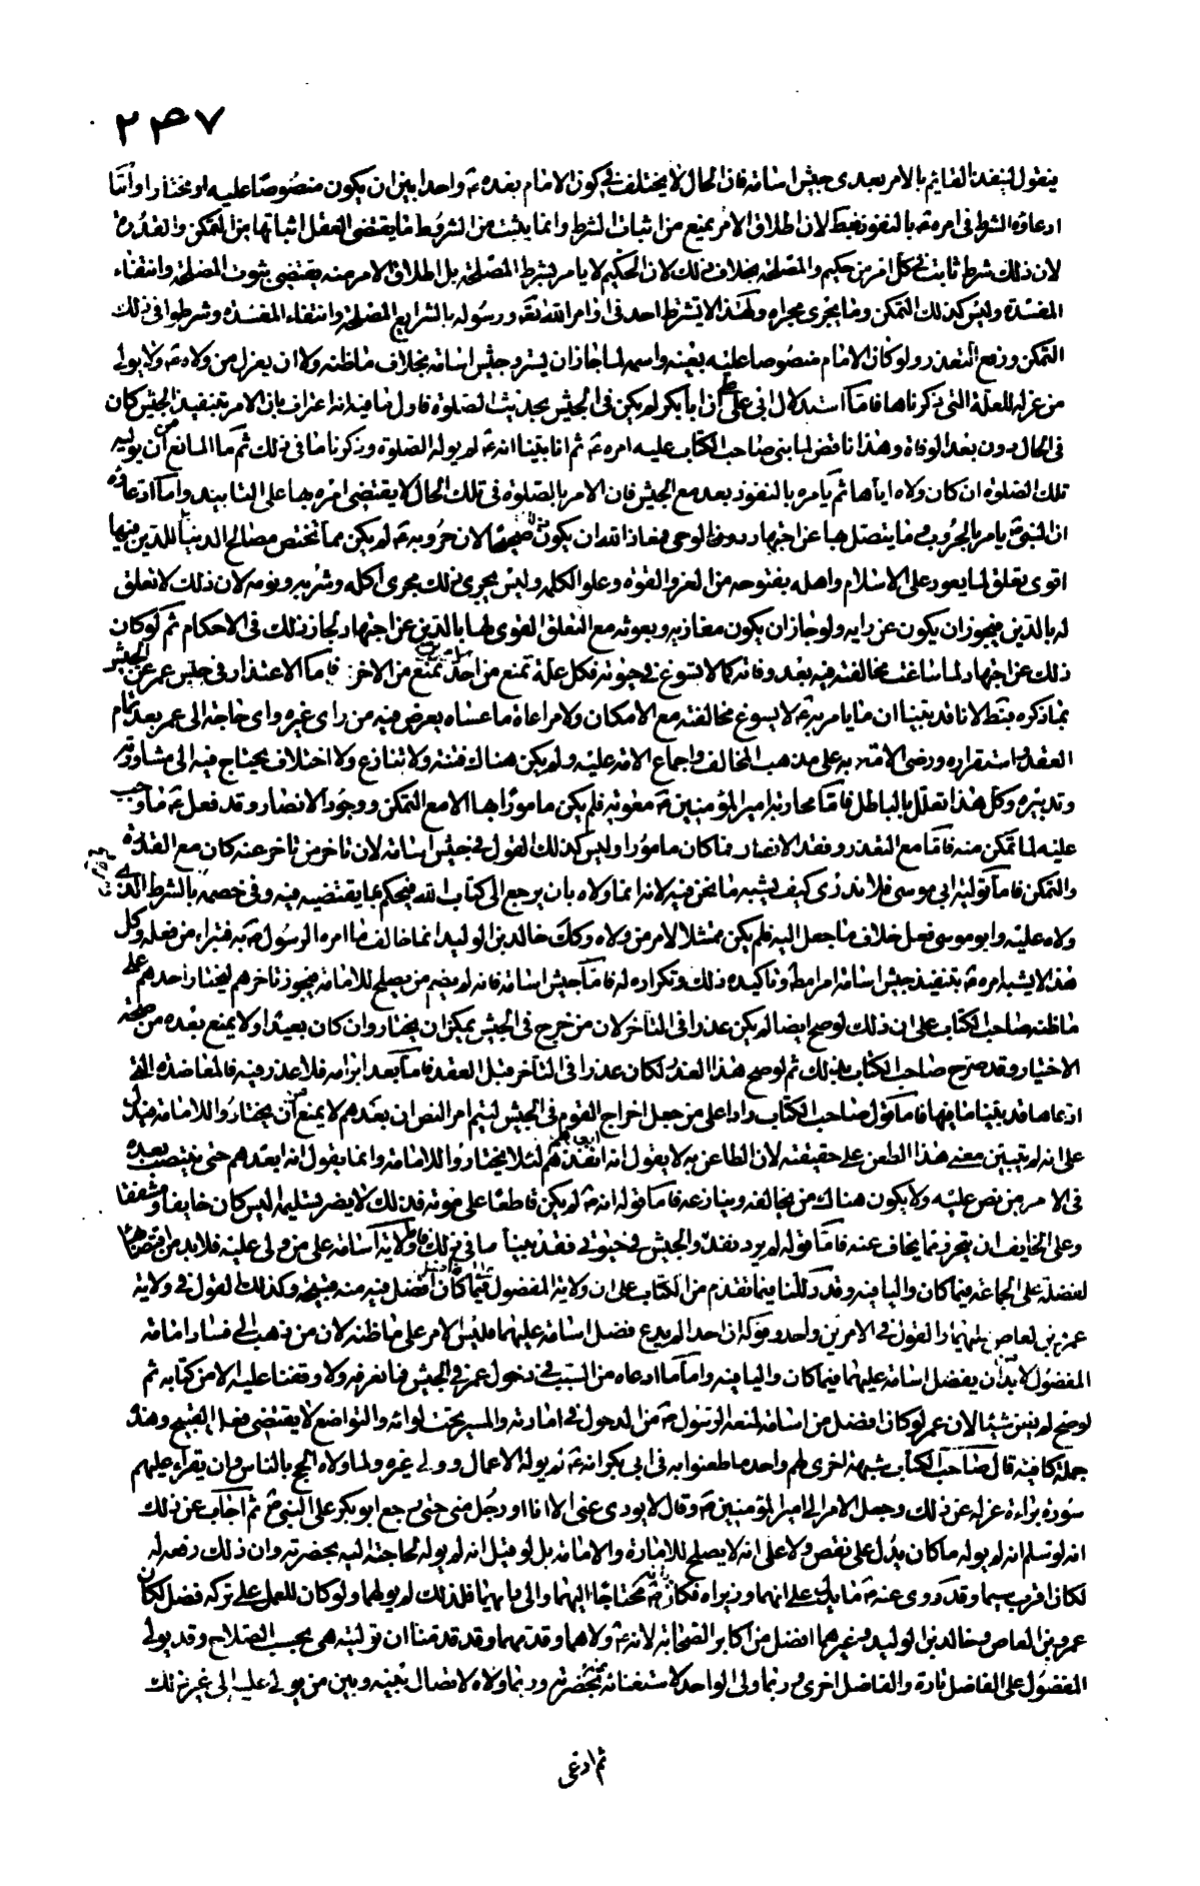 ٢٤٧
يقول لينفذ القايم بالامر بعدى جيش اسامة فان الحال لا يختلف في كون الامام بعده ع واحدا بين ان يكون منصوصا عليه او مختارا واما
ادعاؤه الشرط فى امره ع بالنفوذ فبط لان اطلاق الامر يمنع من اثبات الشرط وانما يثبت من الشروط ما يقتضى العقل اثباتها من التمكن والقدرة
لان ذلك شرط ثابت في كل امر من حكيم والمصلحة بخلاف ذلك لان الحكيم لا يامر بشرط المصلحة بل اطلاق الامر منه يقتضى ثبوت المصلحة وانتفاء
المفسدة وليس كذلك التمكن وما يجرى مجراه ولهذا لا يشترط احد فى اوامر الله تعه ورسوله بالشرايع المصلحة وانتفاء المفسدة وشرطوا فى ذلك
التمكن ورفع التعذر ولو كان الامام منصوصا عليه بعينه واسمه لما جاز ان يسترد جيش اسامة بخلاف ما ظنه ولا ان يعزل من ولاه ع ولا يولى
من عزله للعلة التى ذكرناها فاما استدلال ابى على على ان ابا بكر لم يكن فى الجيش بحديث الصلوة فاول ما فيه انه اعتراف بان الامر بتنفيذ الجيش كان
فى الحال دون بعد الوفاة وهذا ناقض لما بنى صاحب الكتاب عليه امره ع ثم انا بينا انه ع لم يوله الصلوة وذكرنا ما فى ذلك ثم ما المانع من ان يوليه
تلك الصلوة ان كان ولاه اياها ثم يامره بالنفوذ بعد مع الجيش فان الامر بالصلوة فى تلك الحال لا يقتضى امره بها على التابيد واما ادعاؤه
ان النبى ع يامر بالحروب وما يتصل بها عن اجتهاد دون الوحى فمعاذ الله ان يكون صحيحا لان حروبه ع لم يكن مما تختص مصالح الدنيا بل للدين فيها
اقوى تعلق لما يعود على الاسلام واهله بفتوحه من العز والقوة وعلو الكلمة وليس يجرى ذلك مجرى اكله وشربه ونومه لان ذلك لا تعلق
له بالدين فيجوز ان يكون عن رايه ولو جاز ان يكون مغازيه وبعوثه مع التعلق القوى لها بالدين عن اجتهاد لجاز ذلك فى الاحكام ثم لو كان
ذلك عن اجتهاد لما ساغت مخالفته فيه بعد وفاته كما لا تسوغ في حيوته فكل علة تمنع من احد الامرين تمنع من الاخر فاما الاعتذار فى حبس عمر عن الجيش
بما ذكره فبط لانا قد بينا ان ما يامر به ع لا يسوغ مخالفته مع الامكان ولا مراعاة ما عساه يعرض فيه من راى غيره واى حاجة الى عمر بعد تمام
العقد واستقراره ورضى الامة به على مذهب المخالف واجماع الامة عليه ولم يكن هناك فتنة ولا تنازع ولا اختلاف يحتاج فيه الى مشاورته
وتدبيره وكل هذا تعلل بالباطل فاما محاربة امير المؤمنين ع معوية فلم يكن مامورا بها الا مع التمكن ووجود الانصار وقد فعل ع ما وجب
عليه لما تمكن منه فاما مع التعذر وفقد الانصار فما كان مامورا وليس كذلك القول في جيش اسامة لان تاخر من تاخر عنه كان مع القدرة
والتمكن فاما تولية ابى موسى فلا ندرى كيف يشبه ما نحن فيه لانه انما ولاه بان يرجع الى كتاب الله فيحكم بما يقتضيه فيه وفى خصمه بالشرط الذى
ولاه عليه وابو موسى فعل خلاف ما جعل اليه فلم يكن ممتثلا لامر من ولاه وكك خالد بن الوليد انما خالف ما امره الرسول ص به فتبرا من فعله وكل
هذا لا يشبه امره ع بتنفيذ جيش اسامة امرا مط وتاكيده ذلك وتكراره له فاما جيش اسامة فانه لم يضم من يصلح للامامة فيجوز تاخرهم ليختار احدهم على
ما ظنه صاحب الكتاب على ان ذلك لو صح ايضا لم يكن عذرا فى التاخر لان من خرج فى الجيش يمكن ان يختار وان كان بعيدا ولا يمنع بعده من صحة
الاختيار وقد صرح صاحب الكتاب بذلك ثم لو صح هذا العذر لكان عذرا فى التاخر قبل العقد فاما بعد ابرامه فلا عذر فيه فالمعاضدة التى
ادعاها قد بينا ما فيها فاما قول صاحب الكتاب رادا على من جعل اخراج القوم فى الجيش ليتم امر النص ان بعدهم لا يمنع من ان يختاروا للامامة فيدل
على انه لم يتبين معنى هذا الطعن على حقيقته لان الطاعن به لا يقول انه ابعدهم لئلا يختاروا للامامة وانما يقول انه ابعدهم حتى ينتصب بعده
فى الامر من نص عليه ولا يكون هناك من يخالفه وينازعه فاما قوله انه ع لم يكن قاطعا على موته فذلك لا يضر تسليمه اليس كان خايفا ومشفقا
وعلى الخايف ان يتحرز مما يخاف عنه فاما قوله لم يرد نفذوا الجيش فى حيوتى فقد بينا ما فى ذلك فاما ولاية اسامة على من ولى عليه فلا بد من اقتضائها
لفضله على الجماعة فيما كان واليا فيه وقد دللنا فيما تقدم من الكتاب على ان ولاية المفضول على الفاضل فيما كان افضل فيه منه قبيحة وكذلك القول فى ولاية
عمرو بن العاص عليهما والقول فى الامرين واحد وقوله ان احدا لم يدع فضل اسامة عليهما فليس الامر على ما ظنه لان من ذهب الى فساد امامة
المفضول لا بد ان يفضل اسامة عليهما فيما كان واليا فيه واما ما ادعاه من السبب فى دخول عمر فى الجيش فما نعرفه ولا وقفنا عليه الا من كتابه ثم
لو صح لم يغن شيئا لان عمر لو كان افضل من اسامة لمنعه الرسول ص من الدخول فى امارته والمسير تحت لوائه والتواضع لا يقتضى فعل القبيح وهذه
جملة كافية قال صاحب الكتاب شبهة اخرى لهم واحد ما طعنوا به فى ابى بكر انه ع لم يوله الاعمال وولى غيره ولما ولاه الحج بالناس وان يقراء عليهم
سورة براءة عزله عن ذلك وجعل الامر الى امير المؤمنين ع وقال لا يودى عنى الا انا او رجل منى حتى رجع ابو بكر على النبى ص ثم اجاب عن ذلك
انه لو سلم انه لم يوله ما كان يدل على نقص ولا على انه لا يصلح للامارة والامامة بل لو قيل انه لم يوله لحاجته اليه بحضرته وان ذلك رفعه له
لكان اقرب سيما وقد روى عنه ع ما يدل على انهما وزيراه فكان ع محتاجا اليهما والى رايهما فلذلك لم يولهما ولو كان للعمل على تركه فضل لكان
عمرو بن العاص وخالد بن الوليد وغيرهما افضل من اكابر الصحابة لانه ع ولاهما وقدمهما وقد قدمنا ان توليته هى بحسب الصلاح وقد يولى
المفضول على الفاضل تارة والفاضل اخرى وربما ولى الواحد لاستغنائه بحضرته وربما ولاه لاتصال بينه وبين من يولى عليه الى غير ذلك
ثم ادعى